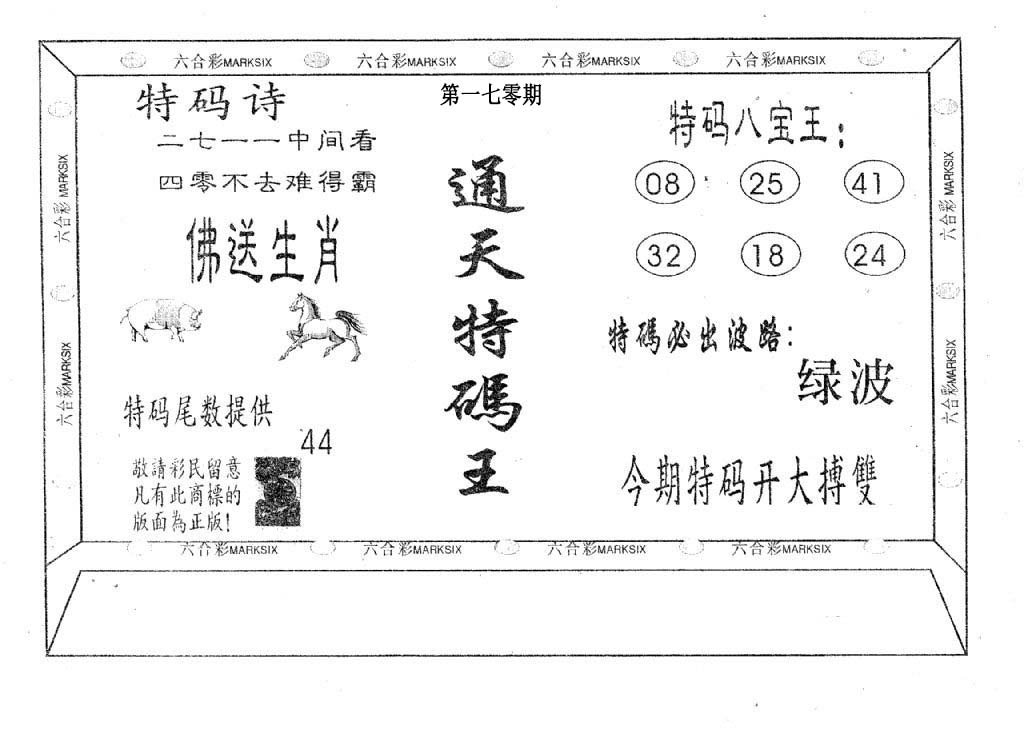 六合彩MARKSIX 六合彩MARKSIX 六合彩MARKSIX 六合彩MARKSIX
第一七零期
特码诗
二七一一中间看
四零不去难得霸
佛送生肖
特码尾数提供
44
敬請彩民留意
凡有此商標的
版面為正版!
通天特碼王
特码八宝王:
08 25 41
32 18 24
特碼必出波路:
绿波
今期特码开大搏雙
六合彩MARKSIX
六合彩MARKSIX
六合彩MARKSIX
六合彩MARKSIX
六合彩MARKSIX 六合彩MARKSIX 六合彩MARKSIX 六合彩MARKSIX